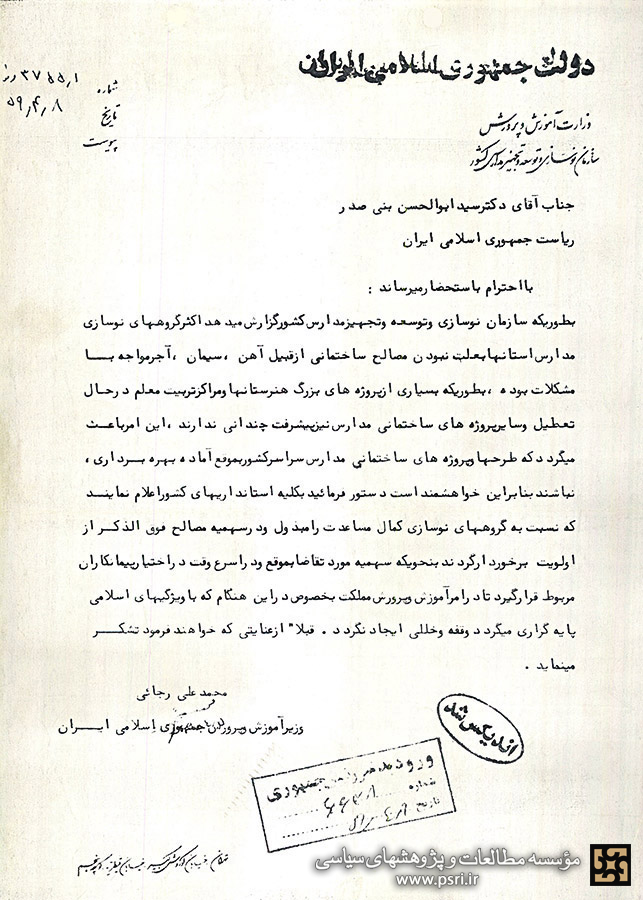 دولت جمهوری اسلامی ایران
وزارت آموزش و پرورش
سازمان نوسازی و توسعه و تجهیز مدارس کشور
شماره
تاریخ ۵۹٫۴٫۸
پیوست
جناب آقای دکتر سید ابوالحسن بنی صدر
ریاست جمهوری اسلامی ایران
با احترام باستحضار میرساند :
بطوریکه سازمان نوسازی وتوسعه وتجهیز مدارس کشورگزارش میدهد اکثرگروههای نوسازی
مدارس استانها بعلت نبودن مصالح ساختمانی ازقبیل آهن ، سیمان ، آجرمواجه بـــا
مشکلات بوده ، بطوریکه بسیاری ازپروژه های بزرگ هنرستانها ومراکزتربیت معلم درحال
تعطیل وسایرپروژه های ساختمانی مدارس نیزپیشرفت چندانی ندارند ، این امرباعث
میگردد که طرحها وپروژه های ساختمانی مدارس سراسرکشوربموقع آماده بهره برداری ،
نباشند بنابراین خواهشمند است دستور فرمائید بکلیه استانداریهای کشوراعلام نماینـــد
که نسبت به گروههای نوسازی کمال مساعدت رامبذول ودرسهمیه مصالح فوق الذکر از
اولویت برخوردارگردند بنحویکه سهمیه مورد تقاضا بموقع ودراسرع وقت دراختیارپیمانکاران
مربوط قرارگیرد تا درامرآموزش وپرورش مملکت بخصوص دراین هنگام که با ویژگیهای اسلامی
پایه گزاری میگردد وقفه وخللی ایجاد نگردد . قبلا" ازعنایتی که خواهند فرمود تشکـــر
مینماید .
محمد علی رجائی
وزیرآموزش وپرورش جمهوری اسلامی ایـــران
اندیکس شد
ورود به دفتر ریاست جمهوری
شماره
تاریخ
مؤسسه مطالعات و پژوهشهای سیاسی
www.psri.ir